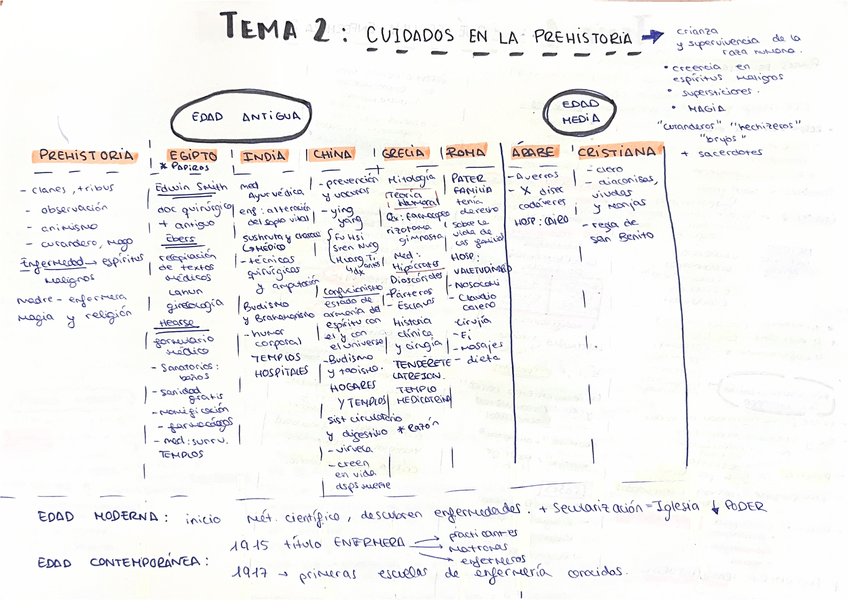 TEMA 2: CUIDADOS EN LA PREHISTORIA →
crianza
y supervivencia de la
raza humana.
• creencia en
espíritus malignos
• supersticiones.
• MAGIA
"curanderos" "hechizeros"
"brujos"
+ sacerdotes
EDAD ANTIGUA
EDAD
MEDIA
PREHISTORIA
- clanes, tribus
- observación
- animismo
- curandero, mago
Enfermedad → espíritus
malignos
madre - enfermera
magia y religión
EGIPTO
* PAPIROS
Edwin Smith
doc quirúrgico
+ antiguo
Ebers
recopilación
de textos
médicos
Lahun
ginecología
Hearse
formulario
médico
- Sanatorios:
baños
- sanidad
gratis
- momificación
- farmacólogos
TEMPLOS
INDIA
med
Ayurvédica
enf: alteración
del soplo vital
sushruta y
MÉDICO
- técnicas
quirúrgicas
y amputación
Budismo
y Brahmanismo
- humor
corporal
TEMPLOS
HOSPITALES
CHINA
- prevención
y vacunas
- ying
yang
Fu Hsi
Shen Nung
Huang Ti
confucionismo
estado de
armonía del
espíritu con
el y con
el universo
- Budismo
y taoismo.
HOGARES
Y TEMPLOS
sist circulatorio
y digestivo
- viruela
- creen
en vida
dsps muerte
GRECIA
Mitología
Teoría
Humoral
rizotoma
gimnasta
Med:
Hipócrates
Dioscórides
- Parteras
- Esclavas
Historia
clínica
y cirugía
TENDERETE
IATREION.
TEMPLO
MEDICATRINA
* Razón
ROMA
PATER
FAMILIA
tenía
derecho
sobre la
vida de
HOSP:
VALETUDINARIO
- Nosocomi
- Claudio
Galeno
cirujía
- Ej
- masajes
- dieta
ÁRABE
- Averros
- X disec
cadáveres
HOSP: CAIRO
CRISTIANA
- clero
- diaconisas,
viudas
y monjas
- regla de
San Benito
EDAD MODERNA: inicio Mét. científico, descubren enfermedades. + Secularización = Iglesia ↓ PODER
EDAD CONTEMPORÁNEA:
1915 título ENFERMERA
→ practicantes
→ matronas
→ enfermeros
1917 → primeras escuelas de enfermería conocidas.